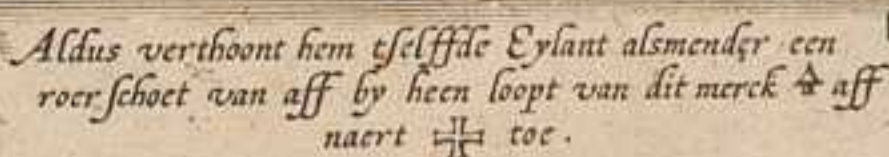 Aldus verthoont hem tselffde Eylant alsmender een
roer schoet van aff by heen loopt van dit merck aff
naert toe.